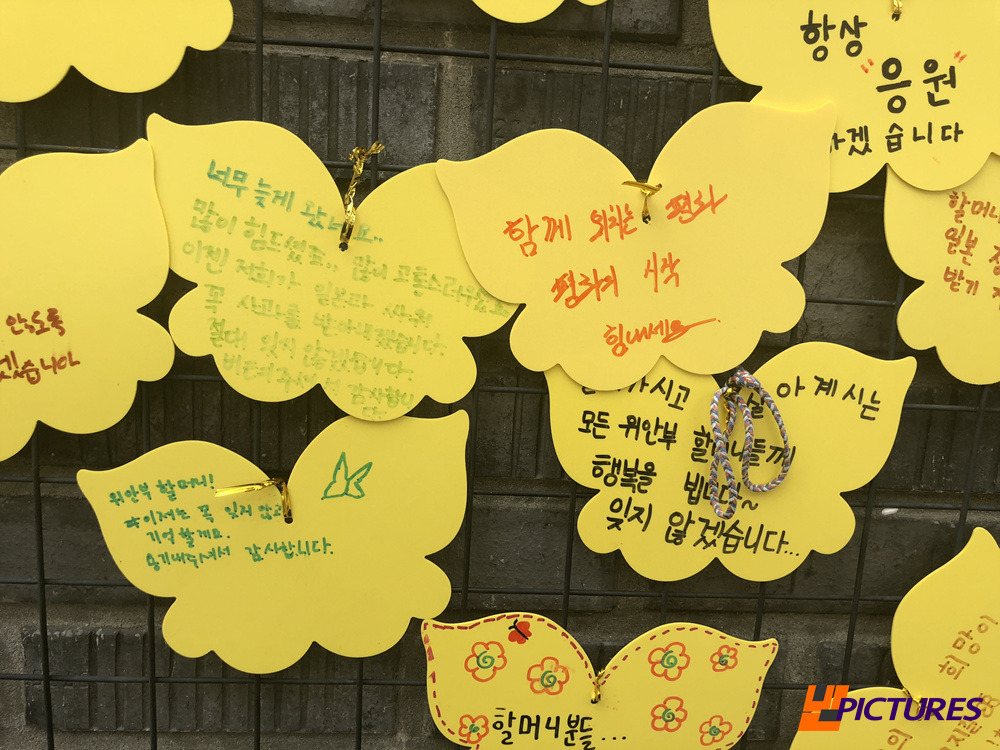 항상
"응원"
하겠습니다
너무 늦게 왔네요..
많이 힘드셨죠.. 많이 고통스러우셨죠
이젠 저희가 일본과 싸워
꼭 사과를 받아내겠습니다.
절대 잊지 않겠습니다.
감사합니
다
함께 외치는 평화
평화의 시작
힘내세요
할머니
일본
받기
않도록
겠습니다
가시고 아 계시는
모든 위안부 할머니들께
행복을 빕니다~
잊지 않겠습니다...
위안부 할머니!
꼭 잊지 않고
기억할게요.
용기내주셔서 감사합니다.
할머니분들...
희망이
의
UPICTURES